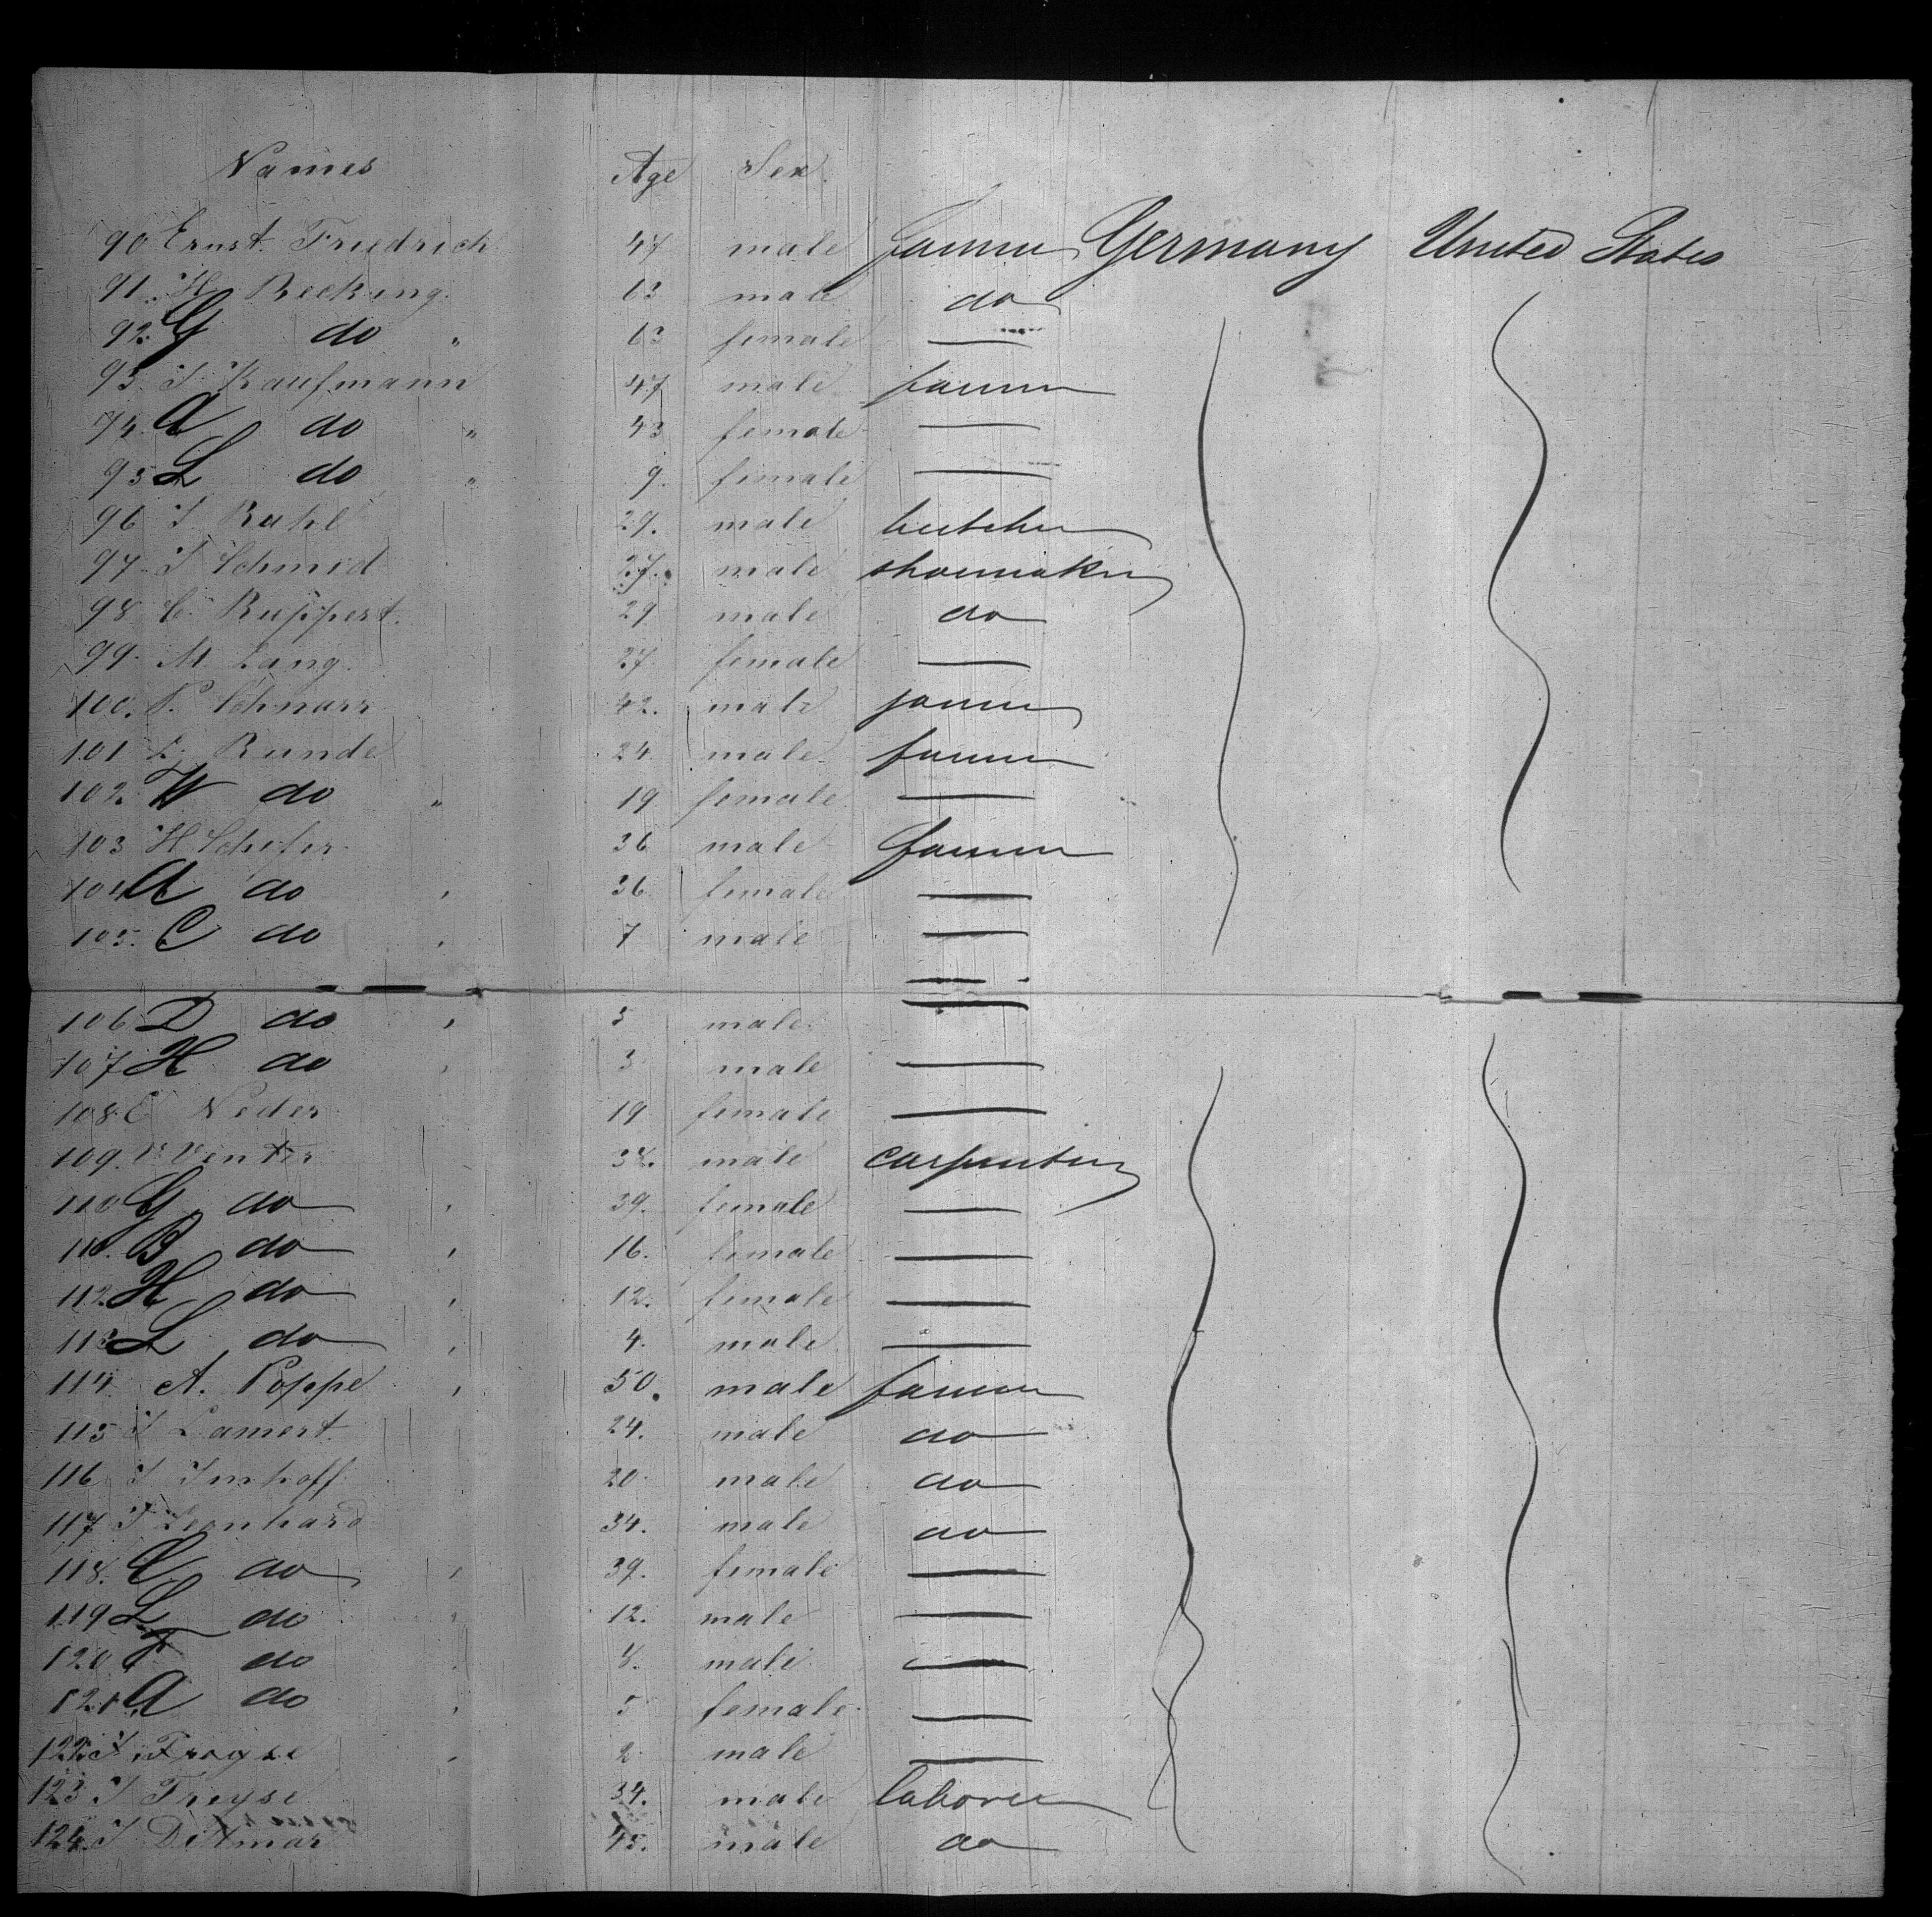 Names Age Sex
90 Ernst Friedrich 47 male farmer Germany United States
91. H Recking 63 male do
92. G do " 63 female —
93. J. Kaufmann 47 male farmer
94. A do " 43 female —
95 L do " 9. female —
96 J. Ruhl 29. male butcher
97. J Schmid 27. male shoemaker
98 C. Ruppert. 29 male do
99. M Lang. 27 female —
100. P. Schnarr 42. male farmer
101 L. Runde 24 male farmer
102. W do " 19 female —
103 H Schefer 36 male farmer
104 A do " 36 female —
105. C do " 7 male —
106 D do " 5 male —
107 H do " 3 male —
108. C Neder 19 female —
109. Venter 38. male carpenter
110 G do " 39. female —
111. B do " 16. female —
112. H do " 12. female —
113 L do " 4. male —
114. A. Poppe " 50. male farmer
115 J Lamert 24. male do
116 J Imhoff 20. male do
117 J Leonhard 34. male do
118. C do " 39. female —
119 L do " 12. male —
120 F do 8. male —
121 A do " 5 female —
122. J. " 2 male —
123 J Freyse 34. male laborer
124. J Dittmar 45. male do